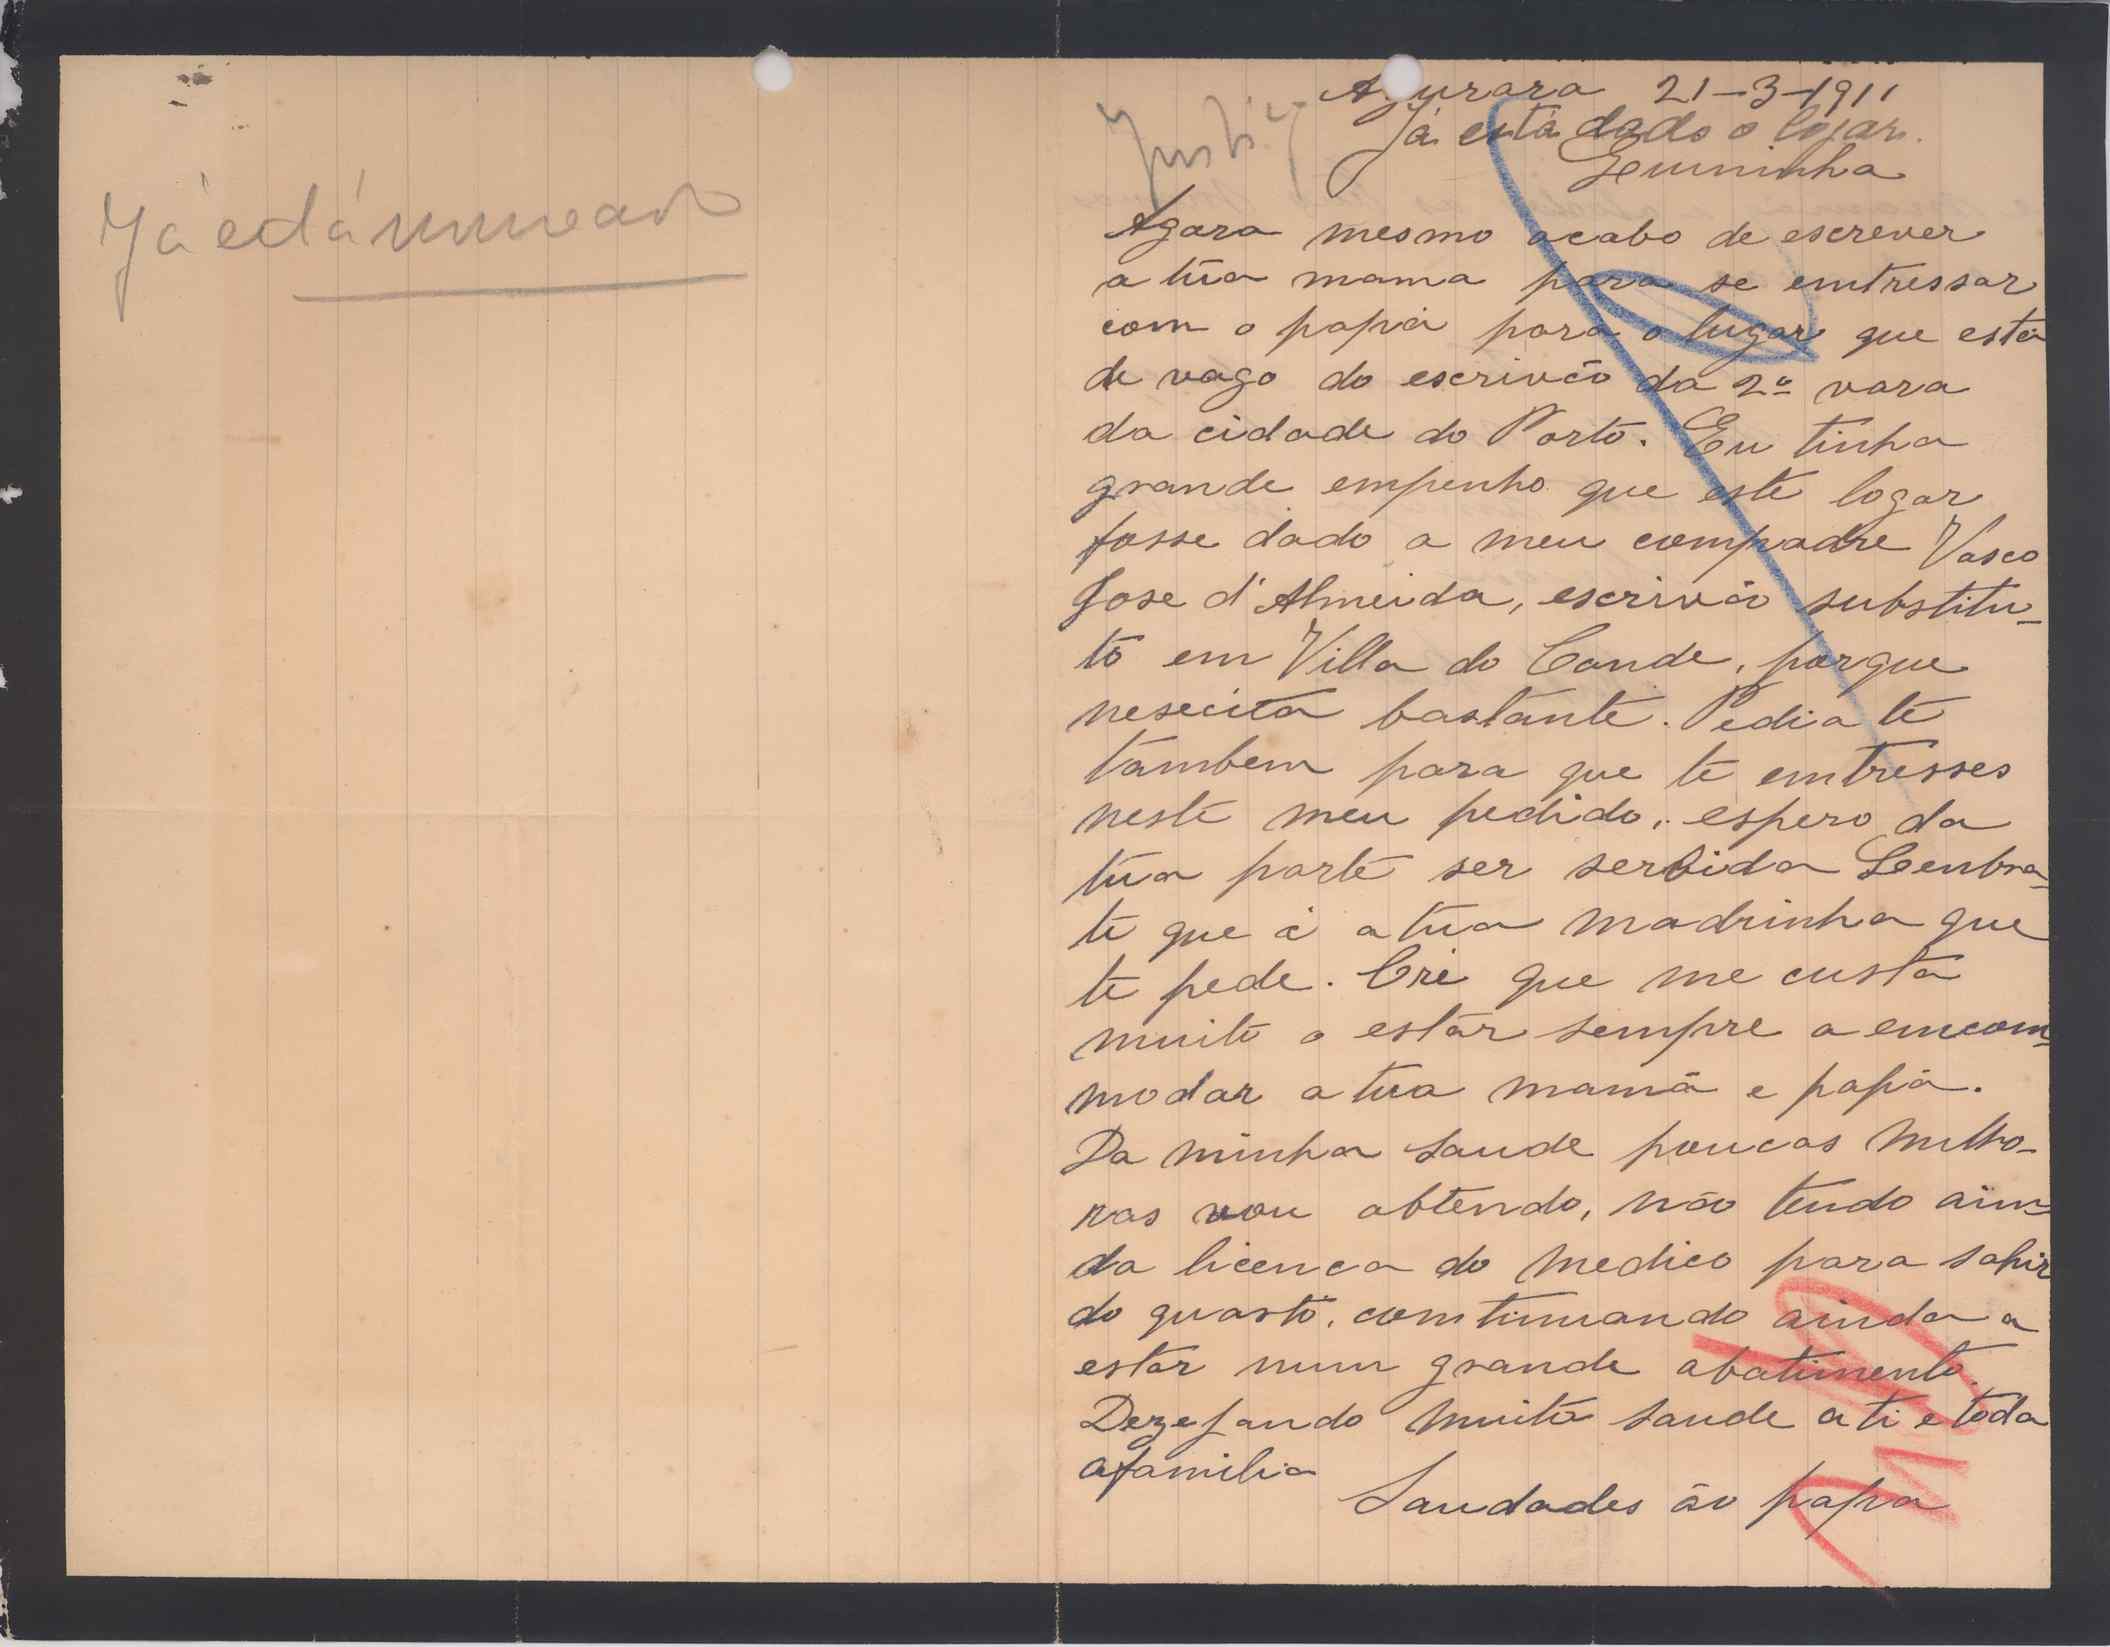 Já está nomeado
Justiça
Azurara 21-3-1911
Já está dado o logar.
Geuninha
Agora mesmo acabo de escrever
a tua mama para se emtressar
com o papá para o lugar que está
de vago do escrivão da 2ª vara
da cidade do Porto. Eu tinha
grande empenho que este logar
fosse dado a meu compadre Vasco
Jose d'Almeida, escrivão substitu-
to em Villa do Conde, porque
nesecita bastante. Pedia te
tambem para que te emtresses
neste meu pedido, espero da
tua parte ser serbida Lembra-
te que é a tua madrinha que
te pede. Crê que me custa
muito o estar sempre a emcom-
modar a tua mamã e papá.
Da minha saude poucas milho-
ras vou obtendo, não tendo ain-
da licenca do medico para sahir
do quarto, comtinuando ainda a
estar num grande abatimento.
Dezejando muita saude a ti e toda
a familia
Saudades ao papa